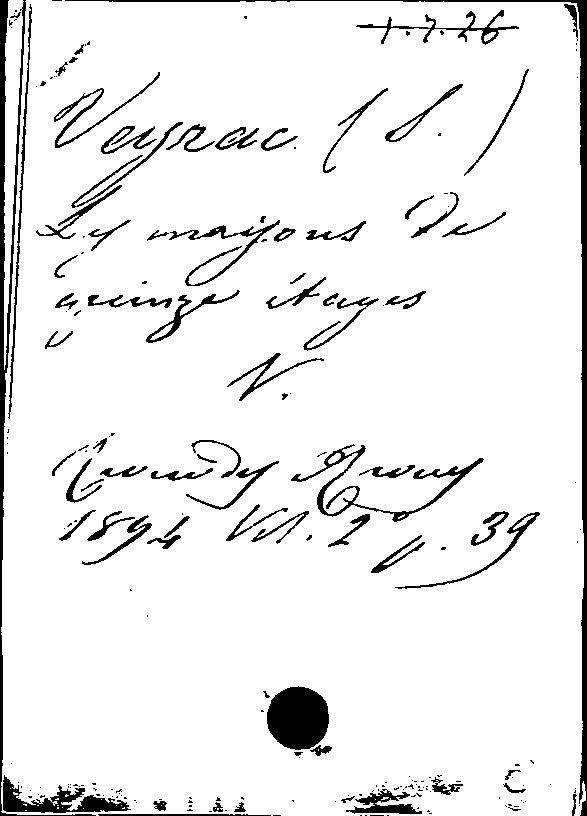 1.7.26
Veyrac (S.)
Les maisons de
quinze étages
V.
1894 Vol. 2º p. 39
C